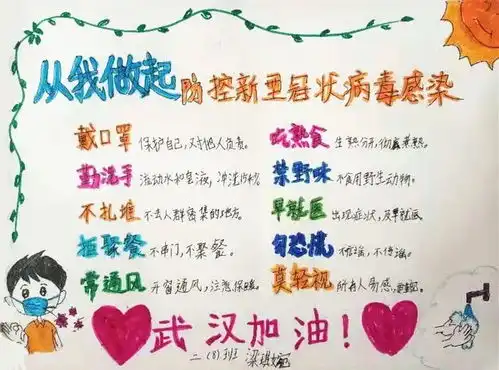 从我做起 防控新型冠状病毒感染
戴口罩 保护自己,对他人负责。
勤洗手 流动水和皂液,冲洗
不扎堆 不去人群密集的地方。
拒聚餐 不串门,不聚餐。
常通风 开窗通风,注意保暖。
吃熟食 生熟分开,彻底煮熟。
禁野味 不食用野生动物。
早就医 出现症状,及早就医
勿恐慌 不信谣,不传谣。
莫轻视 所有人易感,
武汉加油!
二(8)班